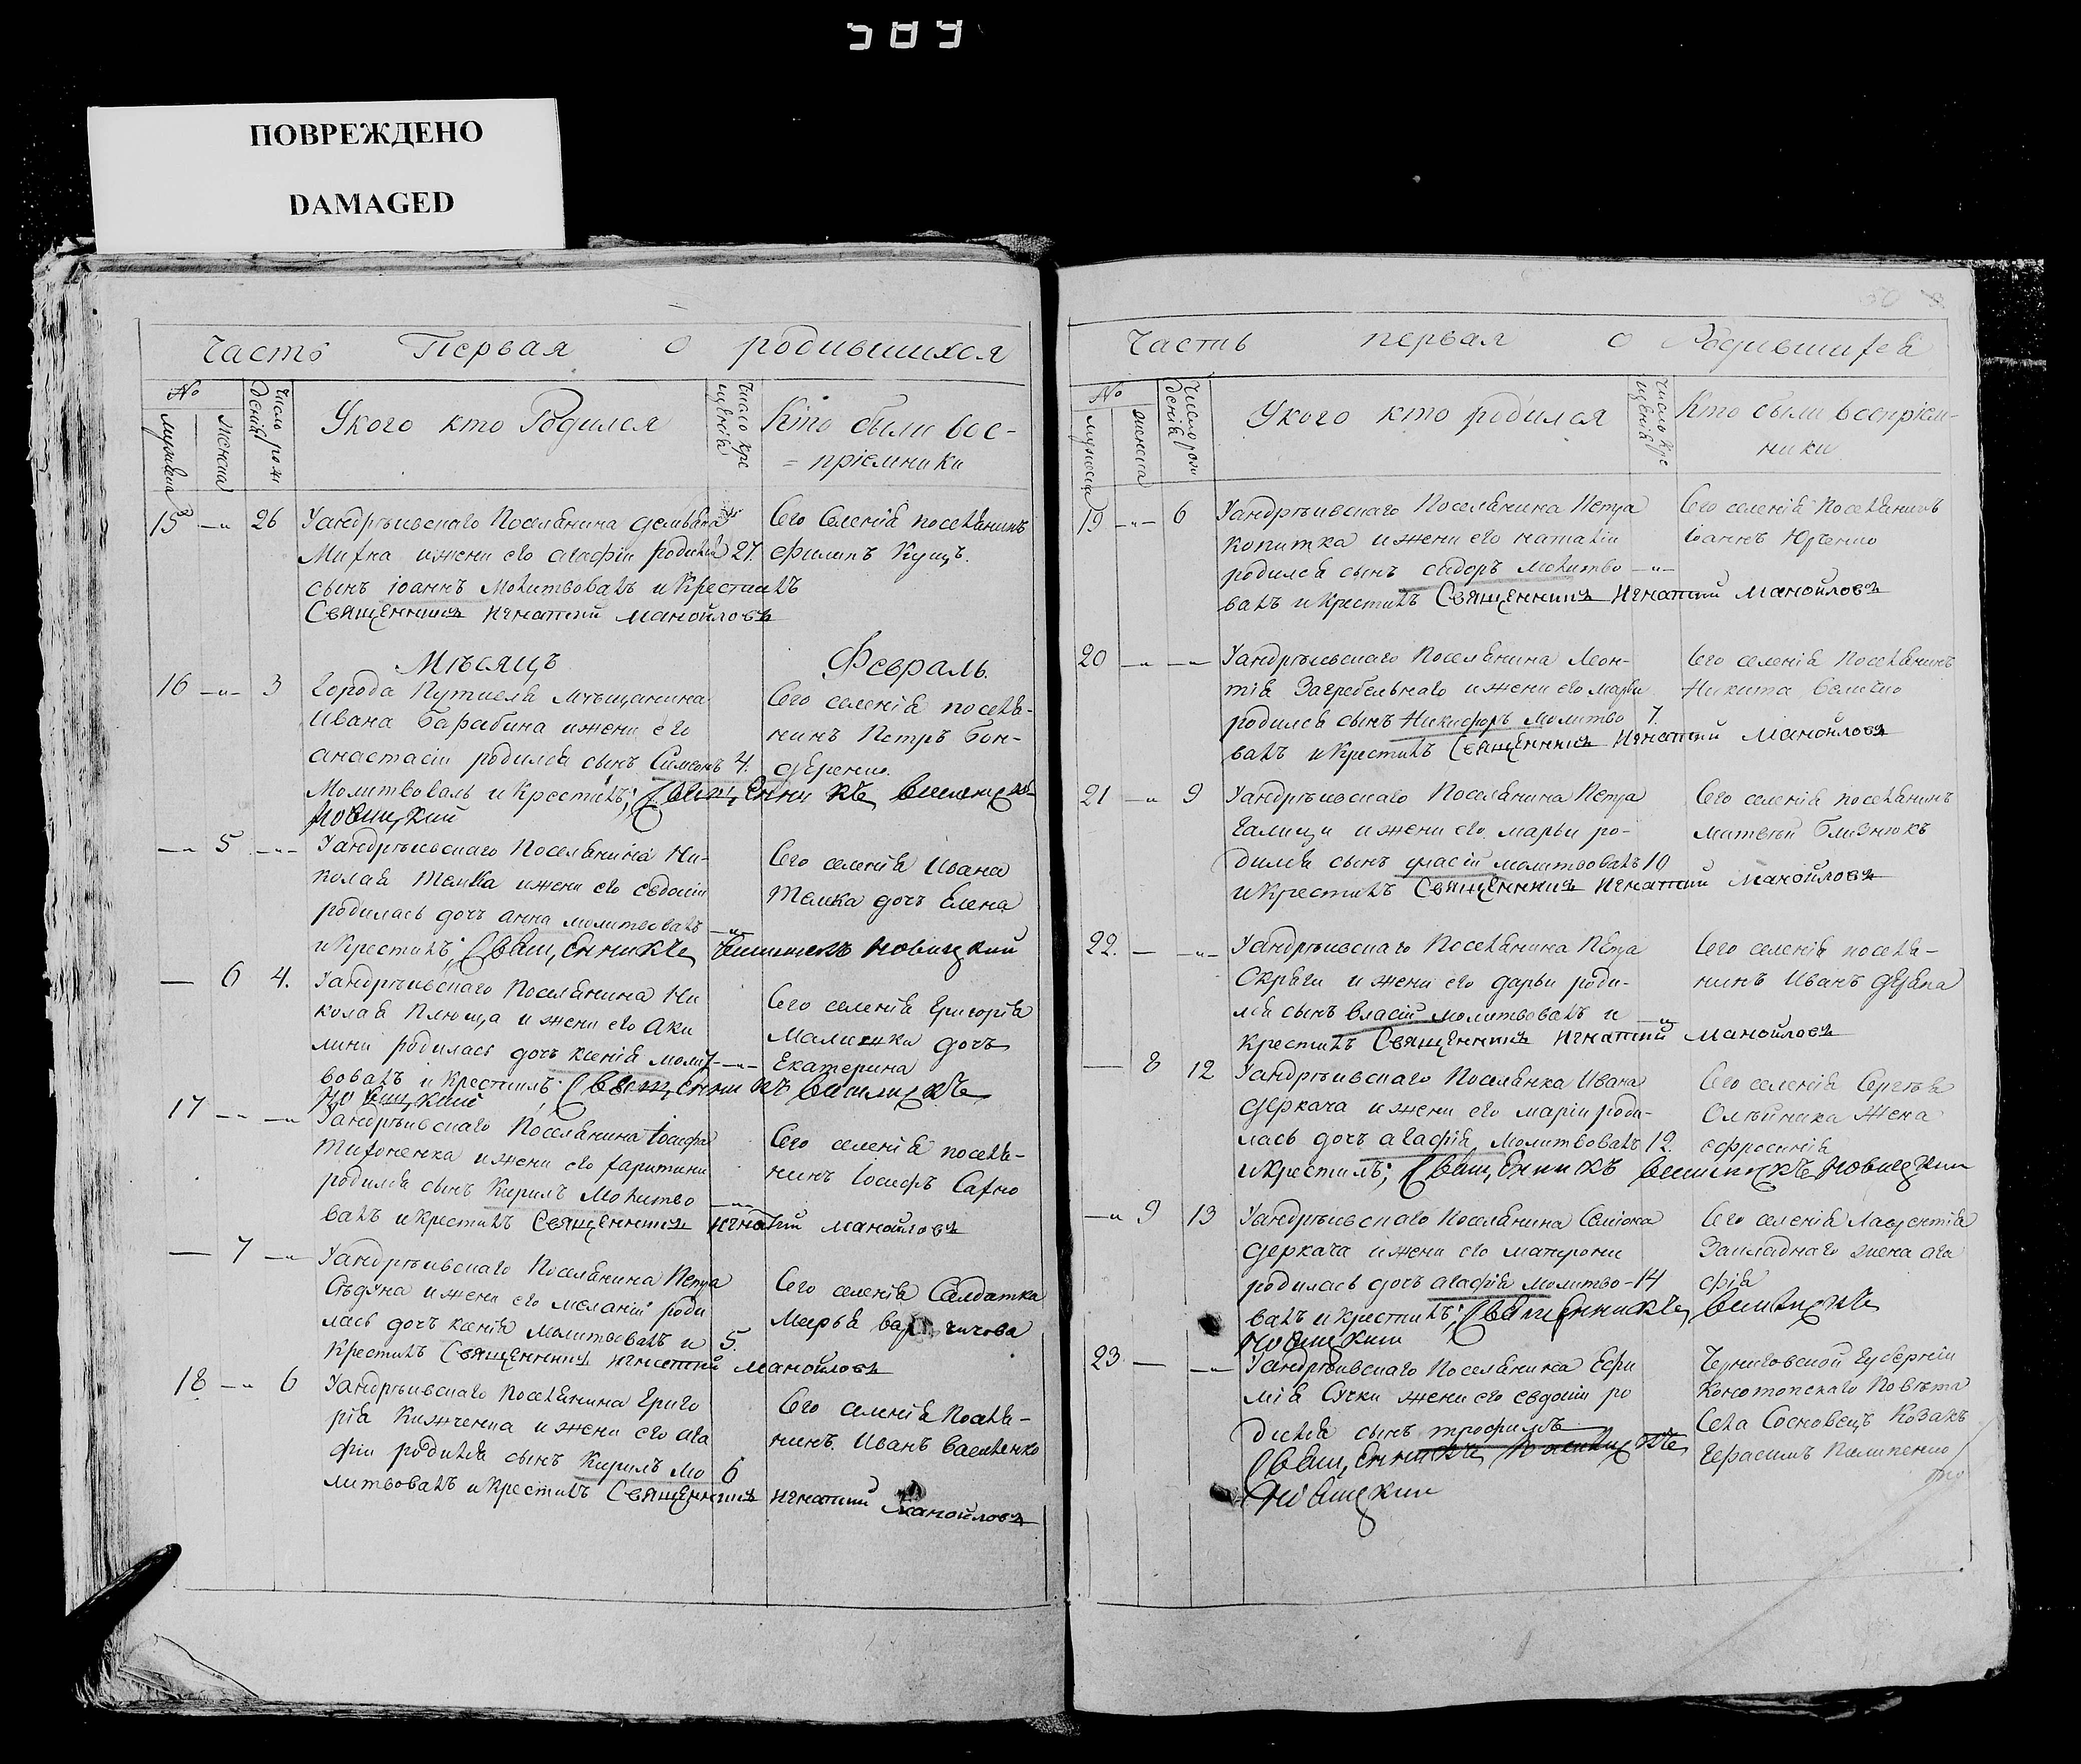 389
ПОВРЕЖДЕНО
DAMAGED
Часть Первая о родившихся
№
мужеска
женска
Число рож
денія
Укого кто Родился
Число кре
щенія
Кто были вос-
= пріемники
15 — „ 26 Уандрѣивскаго Поселянина демьяна
Михна ижени его агафіи родился 27.
сынъ іоаннъ Молитвовалъ и Крестилъ
Священникъ Игнатий Манойловъ
Сего Селенія поселянинъ
филипъ Куцъ.
Мѣсяцъ Февраль.
16 — „ — 3 Города Путивля мѣщанина
Ивана Барабина ижени его
анастасіи родился сынъ Симеонъ 4.
Молитвовалъ и Крестилъ; Священникъ
Новицкий
Сего селенія поселя-
нинъ Петръ Бон-
даренко.
— „ 5 — „ — Уандрѣивскаго Поселянина Ни-
колая Темка ижени его евдокіи
родилась дочь анна молитвовалъ — „ —
и Крестилъ; Священникъ Новицкий
Сего селенія Ивана
Темка дочь Елена
— 6 4. Уандрѣивскаго Поселянина Ни
колая Плюща и жени его Аки
лини родилась дочь ксенія молит — „ —
вовалъ и Крестилъ Священникъ
Новицкий
Сего селенія Григорія
Малишка дочь
Екатерина
17 — „ — „ Уандрѣивскаго Поселянина Іосифа
Тихоненка ижени его харитини
родился сынъ Кирилъ Молитво — „ —
валъ и Крестилъ Священникъ Игнатий Манойловъ
Сего селенія поселя-
нинъ Іосифъ Сахно
— 7 — „ Уандрѣивскаго Поселянина Петра
Сѣдуна ижени его меланіи роди
лась дочь ксенія Молитвовалъ и 5.
Крестилъ Священникъ Игнатий Манойловъ
Сего селенія Салдатка
Марья
18 — „ 6 Уандрѣивскаго Поселянина Григо
рія Кижченка и жени его ага
фіи родился сынъ Кирилъ мо 6
литвовалъ и Крестилъ Священникъ Игнатий Манойловъ
Сего селенія Поселя-
нинъ Иванъ Василенко
Часть первая о Родившихся
№
мужеска
женска
Число рож
денія
Укого кто родился
Число кре
щенія
Кто были воспріем-
ники
19 — „ — 6 Уандрѣивскаго Поселянина Петра
копитка и жени его наталіи
родился сынъ сидоръ молитво — „ —
валъ и Крестилъ Священникъ Игнатий Манойловъ
Сего селенія Поселянинъ
іоаннъ Юрченко
20 — „ — „ Уандрѣивскаго Поселянина Леон-
тія Загребельнаго и жени его марьи
родился сынъ Никифоръ молитво 7.
валъ и Крестилъ Священникъ Игнатий Манойловъ
Сего селенія Поселянинъ
Никита Величко
21 — „ 9 Уандрѣивскаго Поселянина Петра
Галици и жени его марьи ро-
дился сынъ власій молитвовалъ 10
и Крестилъ Священникъ Игнатий Манойловъ
Сего селенія поселянинъ
матвѣй Близнюкъ
22. — — „ — Уандрѣивскаго Поселянина Петра
Скряги и жени его дарьи роди-
лся сынъ власій молитвовалъ и — „
Крестилъ Священникъ Игнатий Манойловъ
Сего селенія поселя-
нинъ Иванъ
— 8 12 Уандрѣивскаго Поселянка Ивана
деркача и жени его маріи роди-
лась дочь агафія молитвовалъ 12.
и Крестилъ; Священникъ Новицкии
Сего селенія Сергѣя
Олѣйника Жена
ефросинія
— „ 9 13 Уандрѣивскаго Поселянина Семіона
деркача и жени его матрони
родилась дочь агафія молитво- 14
валъ и Крестилъ; Священникъ
Новицкии
Сего селенія Лаврентія
Закладнаго жена ага
фія
23. — — „ — Уандрѣивскаго Поселянина Ефи
мія Сучки жени его евдокіи ро
дился сынъ трофимъ
Священникъ
Новицкии
Черниговской Губерніи
Конотопскаго Повѣта
Села Сосновецъ Козакъ
Герасимъ Пилипенко